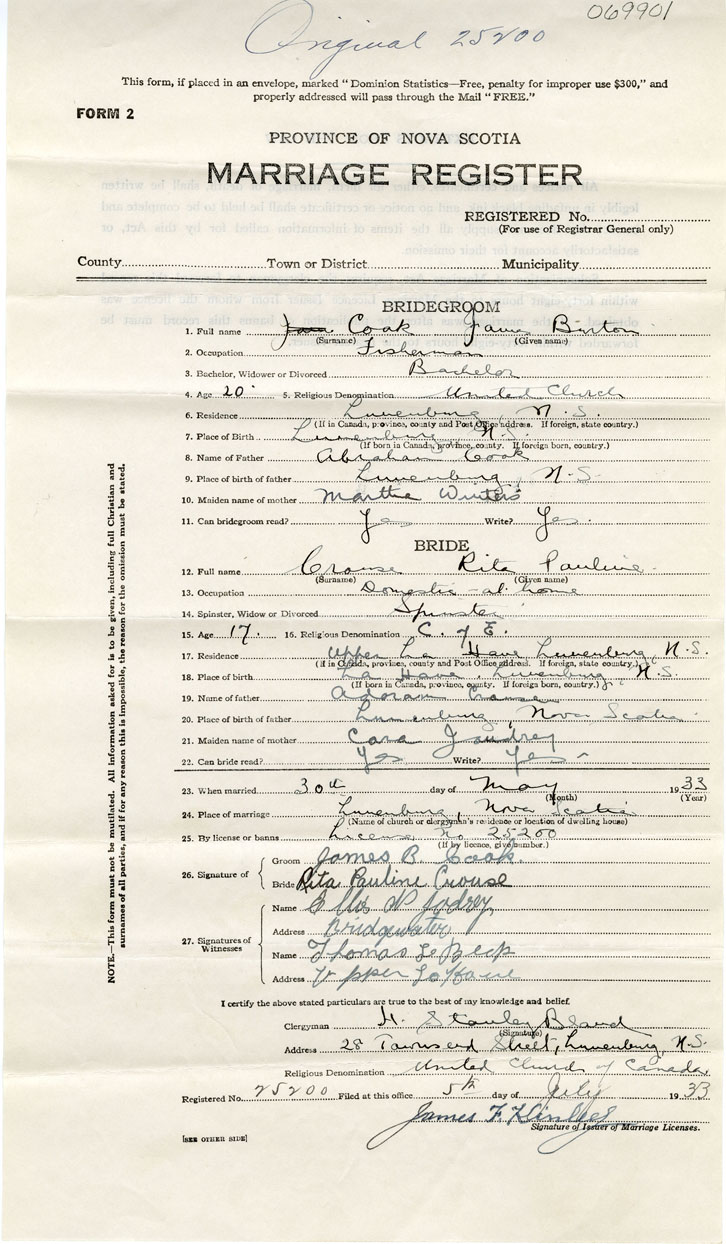 069901
Original 25200
This form, if placed in an envelope, marked "Dominion Statistics—Free, penalty for improper use $300," and
properly addressed will pass through the Mail "FREE."
FORM 2
PROVINCE OF NOVA SCOTIA
MARRIAGE REGISTER
REGISTERED No.
(For use of Registrar General only)
County Town or District Municipality
BRIDEGROOM
1. Full name Cook James Burton
(Surname) (Given name)
2. Occupation Fisherman
3. Bachelor, Widower or Divorced Bachelor
4. Age 20 5. Religious Denomination United Church
6. Residence Lunenburg, N.S.
(If in Canada, province, county and Post Office address. If foreign, state country.)
7. Place of Birth Lunenburg N.S.
(If born in Canada, province, county. If foreign born, country.)
8. Name of Father Abraham Cook
9. Place of birth of father Lunenburg, N.S.
10. Maiden name of mother Martha Winters
11. Can bridegroom read? Yes Write? Yes.
BRIDE
12. Full name Crouse Rita Pauline
(Surname) (Given name)
13. Occupation Domestic - at home
14. Spinster, Widow or Divorced Spinster
15. Age 17. 16. Religious Denomination C. of E.
17. Residence Upper La Have Lunenburg, N.S.
(if in Canada, province, county and Post Office address. If foreign, state country.)
18. Place of birth La Have, Lunenburg, N.S.
(If born in Canada, province, county. If foreign born, country.)
19. Name of father Crouse
20. Place of birth of father Lunenburg, Nova Scotia
21. Maiden name of mother Jaudrey
22. Can bride read? Yes Write? Yes
23. When married 30th day of May 1933
(Month) (Year)
24. Place of marriage Lunenburg, Nova Scotia
(Name of church or clergyman's residence or location of dwelling house)
25. By license or banns License No 25200
(If by licence, give number.)
26. Signature of Groom James B. Cook.
Bride Rita Pauline Crouse
27. Signatures of Witnesses
Name Jodrey
Address Bridgewater
Name Thomas
Address Upper La Have
NOTE.—This form must not be mutilated. All information asked for is to be given, including full Christian and
surnames of all parties, and if for any reason this is impossible, the reason for the omission must be stated.
I certify the above stated particulars are true to the best of my knowledge and belief.
Clergyman Stanley Bland
(Signature)
Address 28 Townsend Street, Lunenburg, N.S.
Religious Denomination United Church of Canada
Registered No. 25200 Filed at this office 5th day of July 1933
James F.
Signature of Issuer of Marriage Licenses.
[SEE OTHER SIDE]